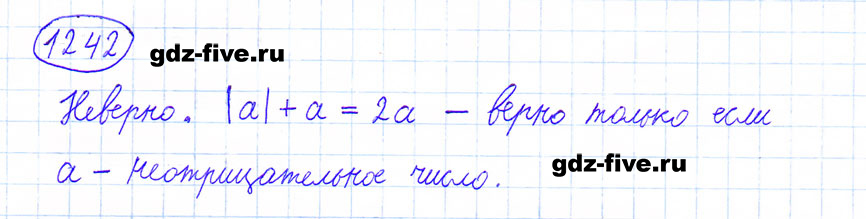 1242 gdz-five.ru
Неверно. |a| + a = 2a – верно только если
a – неотрицательное число. gdz-five.ru